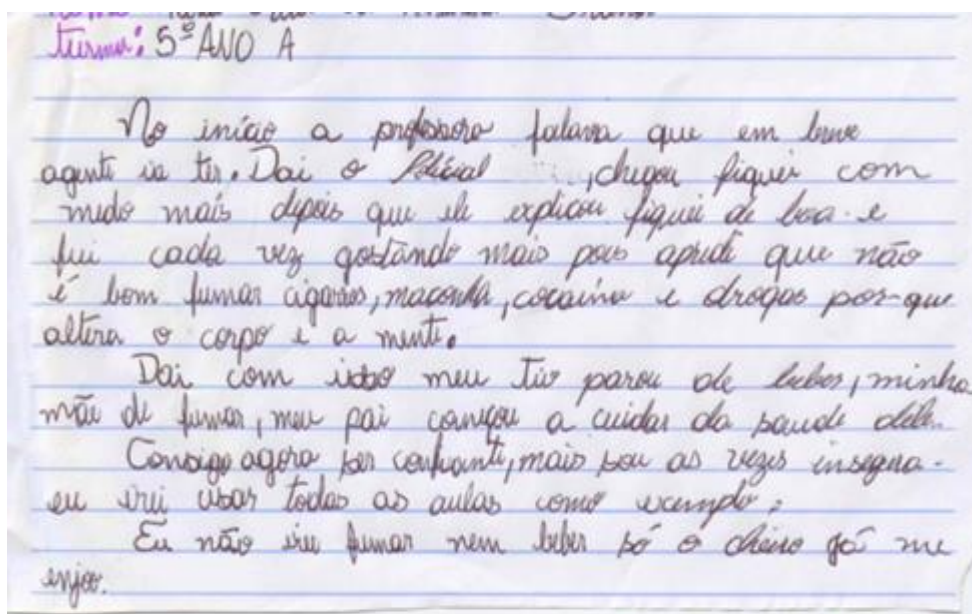 turma: 5º ANO A
No início a professora falava que em breve
agente ia ter. Dai o Policial , chegou fiquei com
medo mais depois que ele explicou fiquei de boa e
fui cada vez gostando mais pois aprudi que não
é bom fumar cigarros, maconha, cocaína e drogas por-que
altera o corpo e a mente.
Dai com isso meu tio parou de beber, minha
mãe de fumar, meu pai começou a cuidar da saude dele.
Consigo agora ser confiante, mais sou as vezes insegura.
eu irei usar todas as aulas como exemplo.
Eu não irei fumar nem beber só o cheiro já me
enjoo.